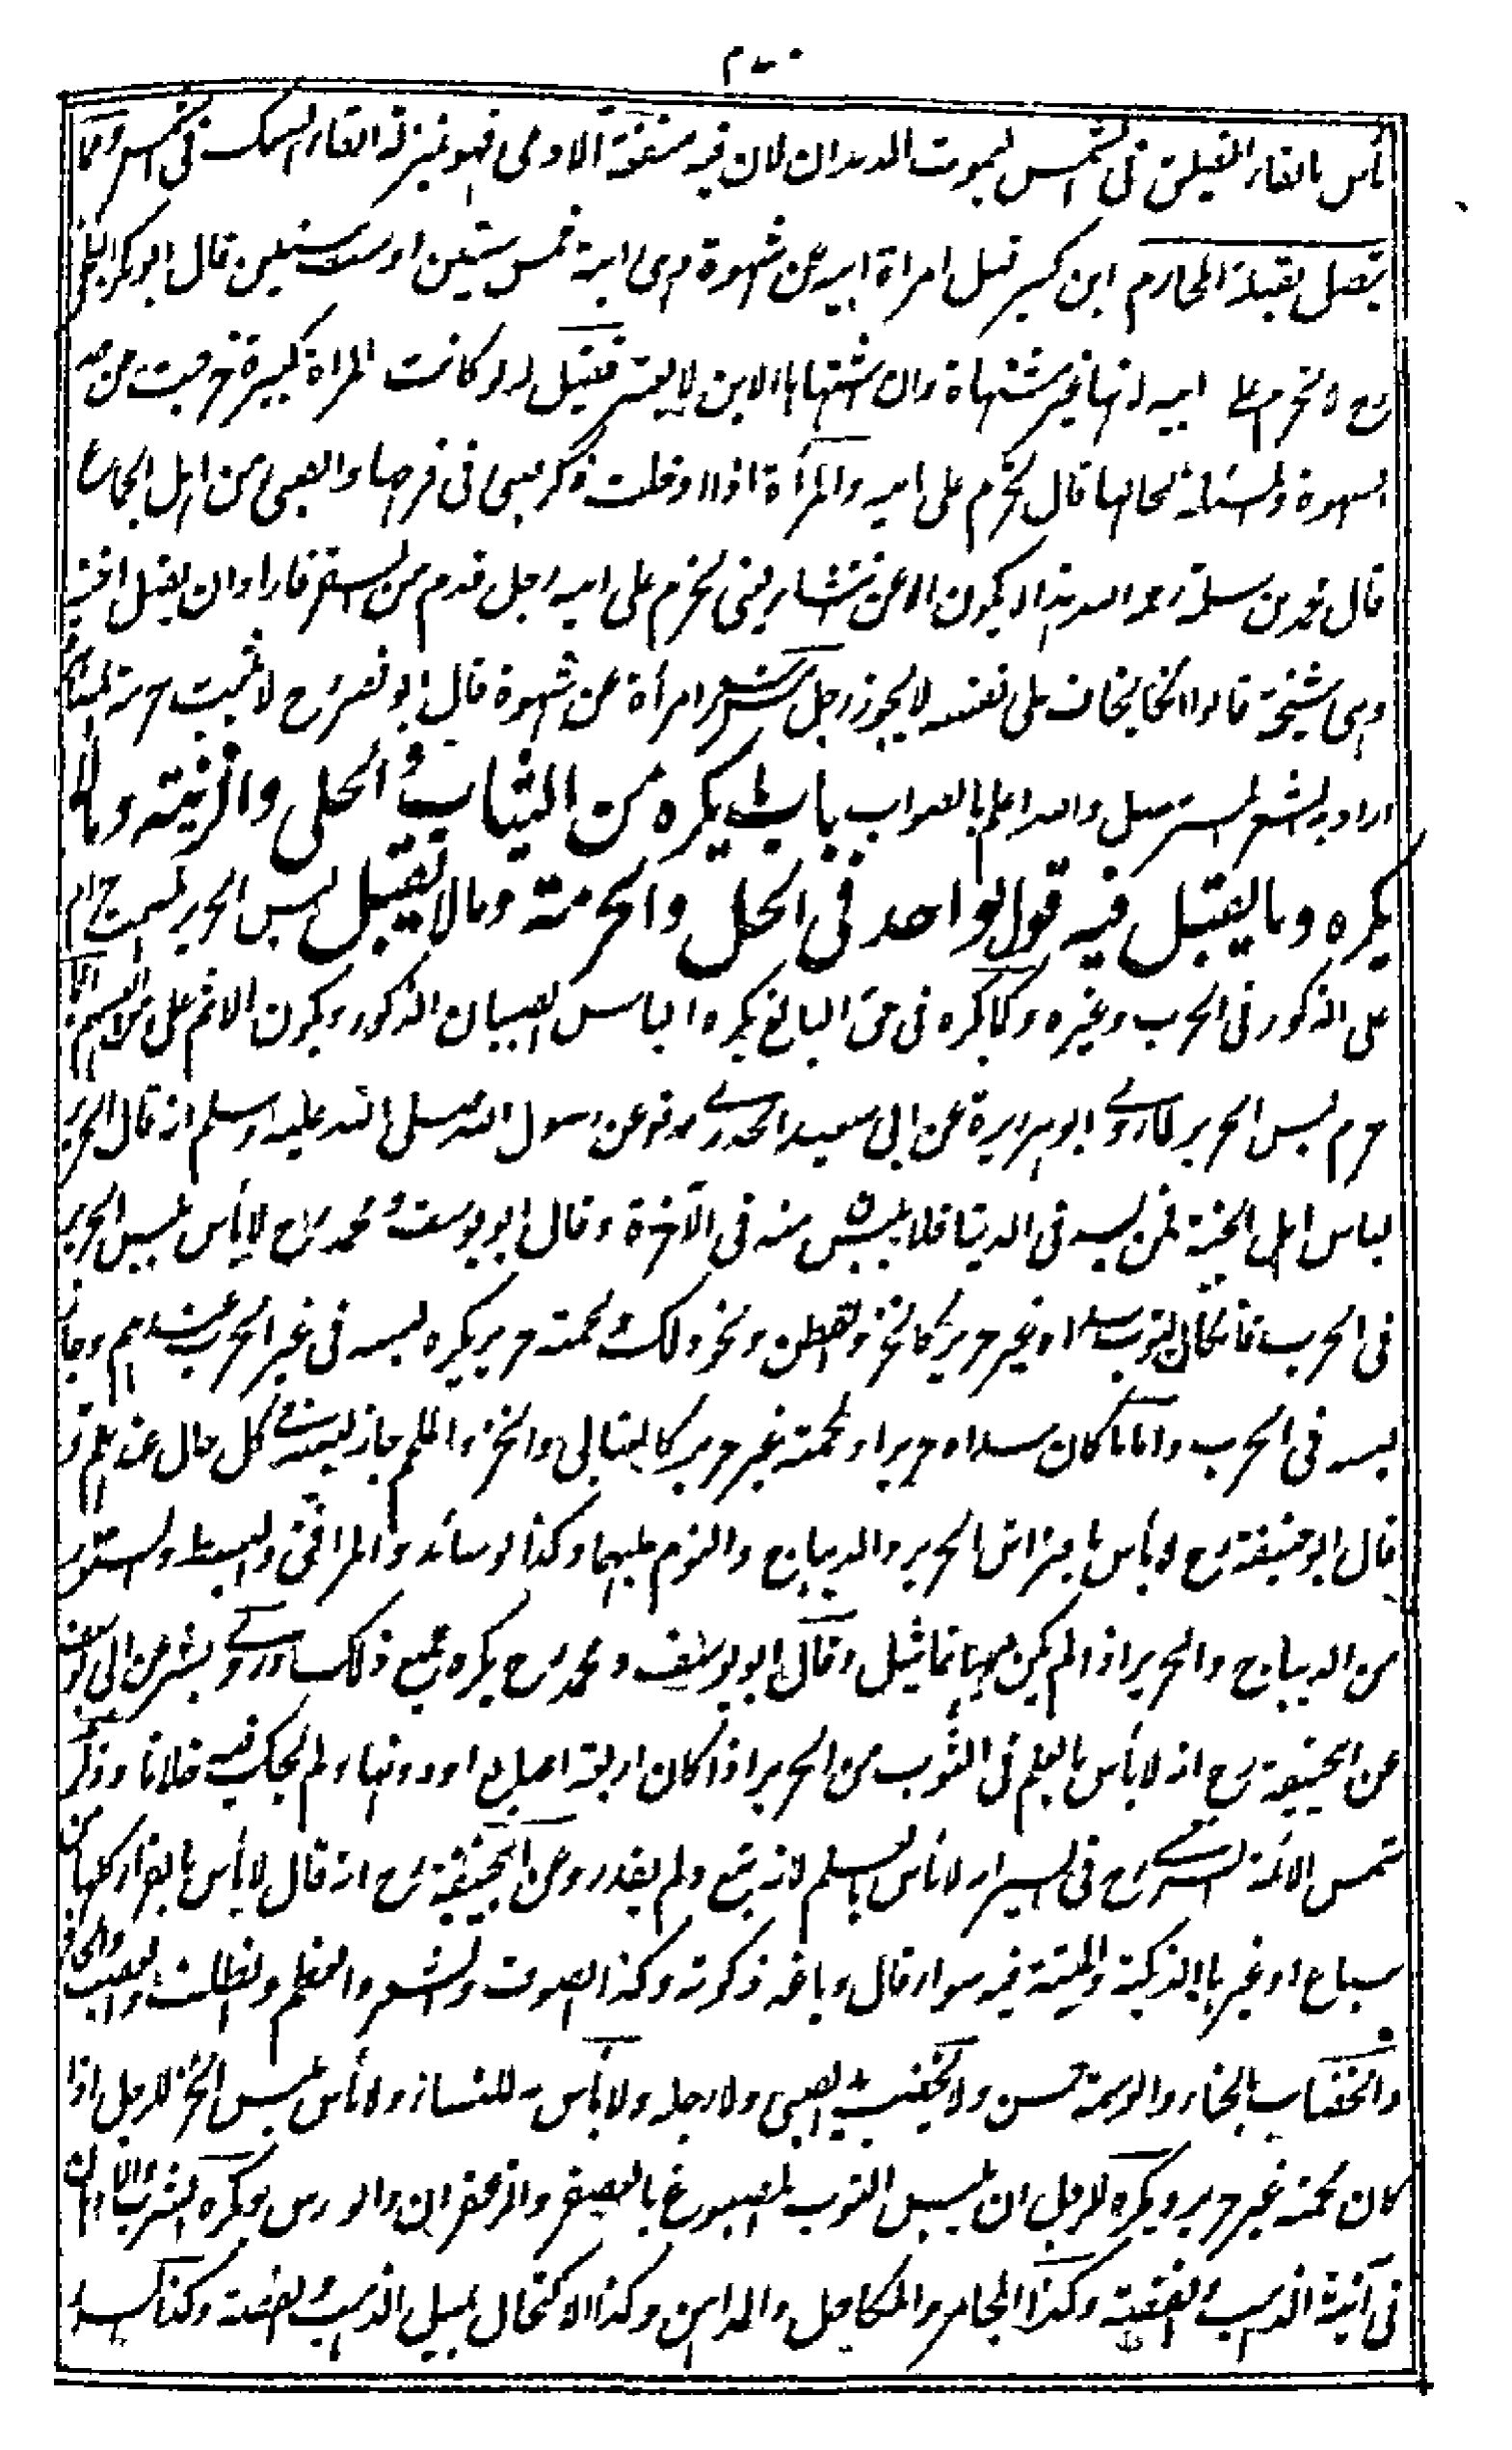 بأس بالقاء الفيلق فى الشمس ليموت الديدان لان فيه منفعة الآدمى فهو بمنزلة القاء السمك فى الشمس ومما
يتصل بقبلة المحارم ابن كبير قبل امرأة ابيه عن شهوة وهى ابنة خمس سنين او ست سنين قال ابو بكر البلخى
رح لا تحرم على ابيه لانها غير مشتهاة وان اشتهاها الابن لا يعتبر فقيل له لو كانت المرأة كبيرة خرجت من حد
الشهوة والمسئلة بحالها قال تحرم على ابيه والمرأة اذا ادخلت ذكر صبى فى فرجها والصبى من اهل الجماع
قال محمد بن سلمة رحمه الله هذا لا يكون الا عن يعنى تحرم على ابيه رجل قدم من السفر فاراد ان يقبل اخته
وهى شيخة قالوا ان كان يخاف على نفسه لا يجوز رجل مس شعر امرأة عن شهوة قال ابو نصر رح لا تثبت حرمة المصاهرة
اراد به الشعر المسترسل والله اعلم بالصواب باب ما يكره من الثياب والحلى والزينة وما لا
يكره وما يقبل فيه قول الواحد فى الحل والحرمة وما لا يقبل لبس الحرير المصمت حرام
على الذكور فى الحرب وغيره وكما كره فى حق البالغ يكره الباس الصبيان الذكور ويكون الاثم على من البسهم انما
حرم لبس الحرير لما روى ابو هريرة عن ابى سعيد الخدرى عن رسول الله صلى الله عليه وسلم انه قال الحرير
لباس اهل الجنة فمن لبسه فى الدنيا فلا يلبس منه فى الآخرة وقال ابو يوسف ومحمد رح لا بأس بلبس الحرير
فى الحرب فان كان الثوب سداه غير حرير كالخز والقطن ونحو ذلك ولحمته حرير يكره لبسه فى غير الحرب عندهم وجاز
لبسه فى الحرب واما ما كان سداه حريرا ولحمته غير حرير كالعتابى والخز والملحم جاز لبسه فى كل حال عندهم
قال ابو حنيفة رح لا بأس بافتراش الحرير والديباج والنوم عليهما وكذا الوسائد والمرافق والبسط والستور
من الديباج والحرير اذا لم يكن فيها تماثيل وقال ابو يوسف ومحمد رح يكره جميع ذلك وروى بشر عن ابى يوسف
عن ابى حنيفة رح انه لا بأس بالعلم فى الثوب من الحرير اذا كان اربعة اصابع او دونها ولم يحك فيه خلافا وذكر
شمس الائمة السرخسى رح فى السير لا بأس بالعلم لانه تبع ولم يقدر وعن ابى حنيفة رح انه قال لا بأس بالفراء كلها من
سباع او غيرها الذكية والميتة فيه سواء قال دباغه ذكوته وكذا الصوف والشعر والعظم والظلف والعصب والحافر
والخضاب بالحناء والوسمة حسن ولا يخضب يد الصبى ولا رجله ولا بأس به للنساء ولا بأس بلبس الخز للرجل اذا
كان لحمته غير حرير ويكره للرجل ان يلبس الثوب المصبوغ بالعصفر والزعفران والورس ويكره الشرب والادهان
فى آنية الذهب والفضة وكذا المجامر والمكاحل والمداهن وكذا الاكتحال بميل الذهب والفضة وكذا